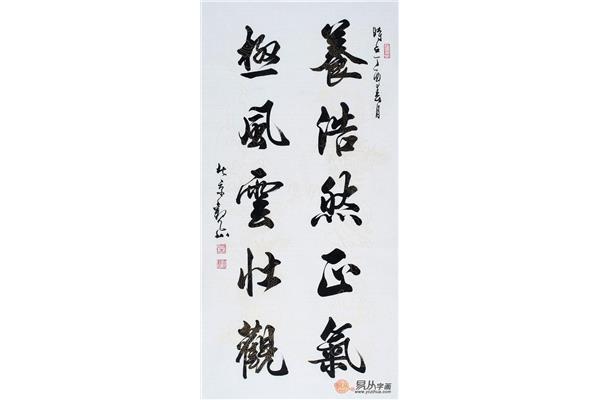 時在丁酉春月
養浩然正氣
極風雲壯觀
北京
易从字画
www.yizihua.com